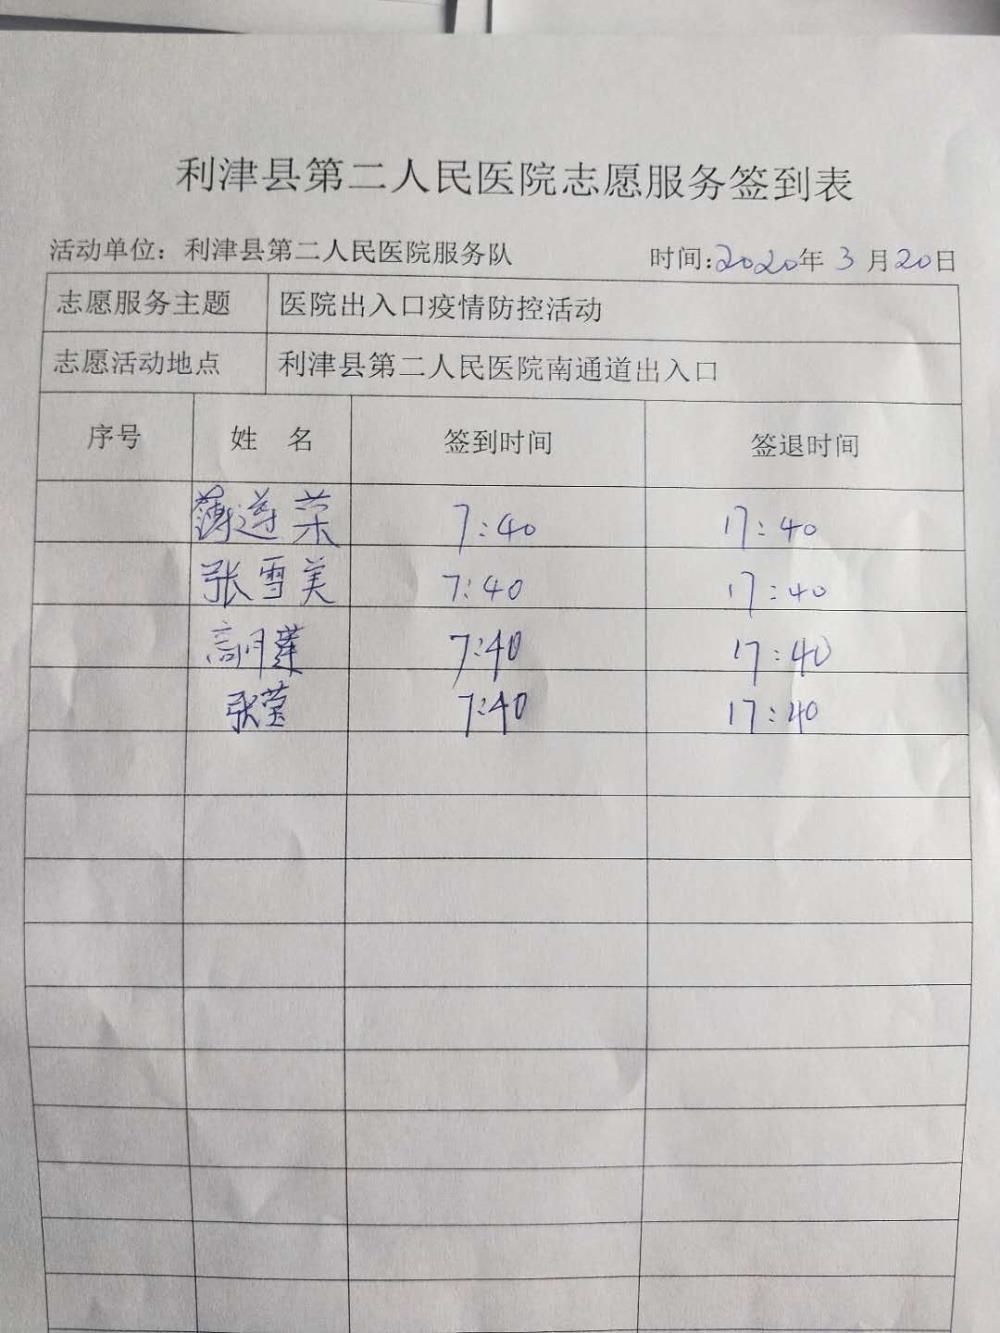 利津县第二人民医院志愿服务签到表
活动单位：利津县第二人民医院服务队 时间:2020年3月20日
志愿服务主题 医院出入口疫情防控活动
志愿活动地点 利津县第二人民医院南通道出入口
序号 姓 名 签到时间 签退时间
薄遵荣 7:40 17:40
张雪美 7:40 17:40
高月莲 7:40 17:40
张莹 7:40 17:40